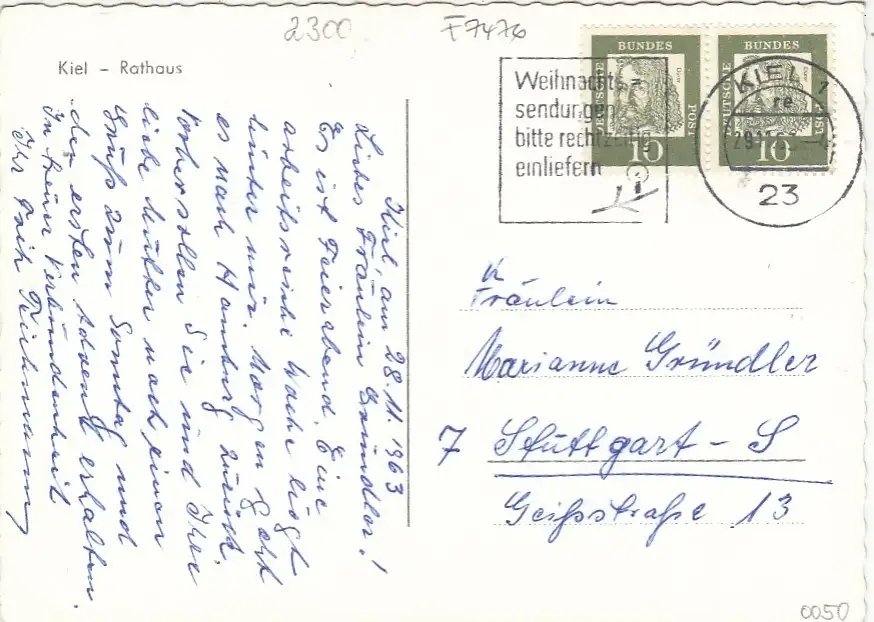 2300
F7476
Kiel – Rathaus
Weihnachts-
sendungen
bitte rechtzeitig
einliefern
DEUTSCHE BUNDES POST
10
DEUTSCHE BUNDES POST
10
KIEL 7
re
23
Kiel, am 28.11.1963
Liebes Fräulein Gründler!
Es ist Feierabend. Eine
arbeitsreiche Woche liegt
hinter mir. Morgen geht
es nach Hamburg zurück.
Vorher sollen Sie und Ihre
liebe Mutter noch einen
Gruß zum Sonntag und
den ersten Advent erhalten.
In treuer Verbundenheit
Ihr
Fräulein
Marianne Gründler
7 Stuttgart – S
Geißstraße 13
0050